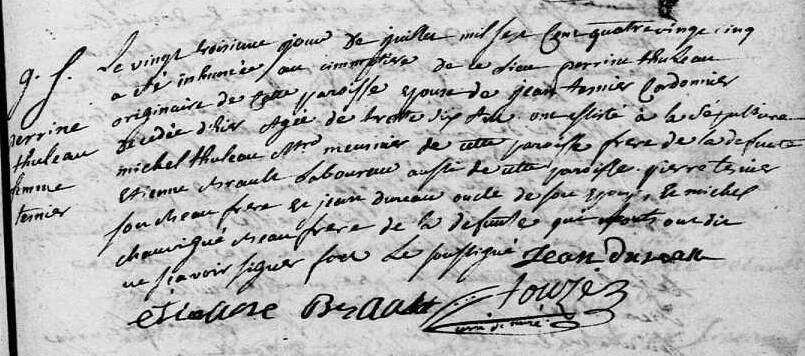 g. f.
perrine
thuleau
femme
ternier
Le vingt troisieme jour de juillet mil sept Cent quatre vingt cinq
a eté inhumée au cimmetiere de ce Lieu perrine thuleau
originaire de cette paroisse epouse de jean ternier Cordonnier
decedée d'hier Agée de trente six An ont assisté à la sépulture
michel thuleau meusnier de cette paroisse frere de la defunte
Etienne Laboureur aussi de cette paroisse pierre ternier
son beau frere et jean dureau oncle de son epoux et michel
chauvigné beau frere de la defunte qui ont dit
ne sçavoir signer fors Le soussigné jean dureau
etienne Braault touzé
curé de